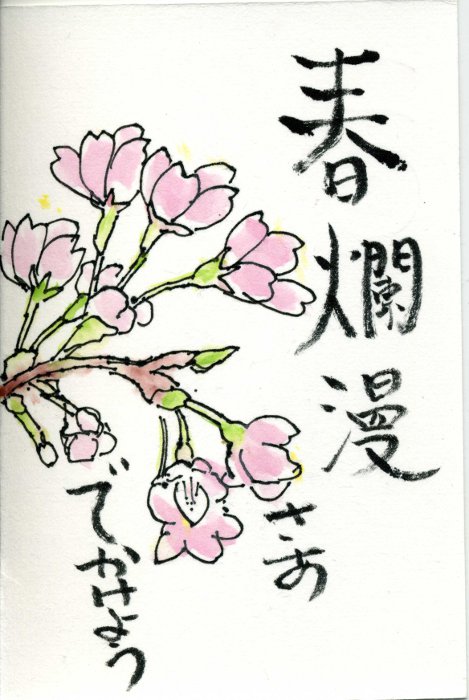 春爛漫
さあ
でかけよう